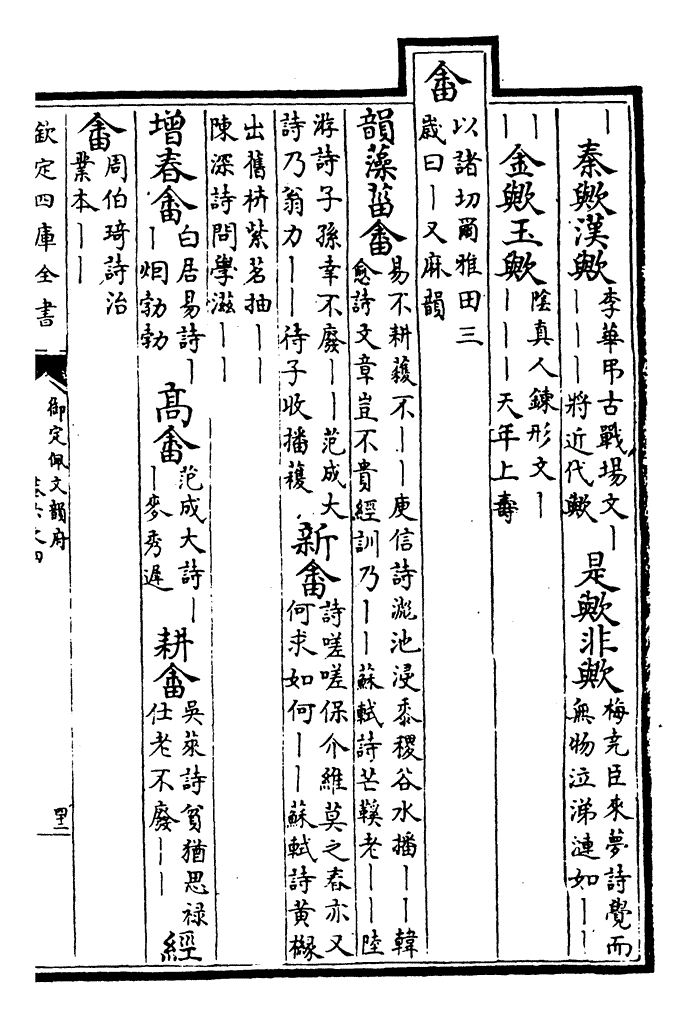 丨秦歟漢歟李華弔古戰場文丨丨丨丨將近代歟是歟非歟梅堯臣來夢詩覺而無物泣涕漣如丨丨
丨丨金歟玉歟陰真人鍊形文丨丨丨丨天年上壽
畬以諸切爾雅田三歲曰丨又麻韻
韻藻菑畬易不耕穫不丨丨庾信詩滮池浸黍稷谷水播丨丨韓愈詩文章豈不貴經訓乃丨丨蘇軾詩芒鞵老丨丨陸
游詩子孫幸不廢丨丨范成大詩乃翁力丨丨待子收播穫新畬詩嗟嗟保介維莫之春亦又何求如何丨丨蘇軾詩黃櫞
出舊枿紫茗抽丨丨陳深詩問學滋丨丨
增春畬白居易詩丨丨炯勃勃高畬范成大詩丨丨麥秀遲耕畬吳萊詩貧猶思祿仕老不廢丨丨經
畬周伯琦詩治業本丨丨
欽定四庫全書
御定佩文韻府
卷六之四
四二